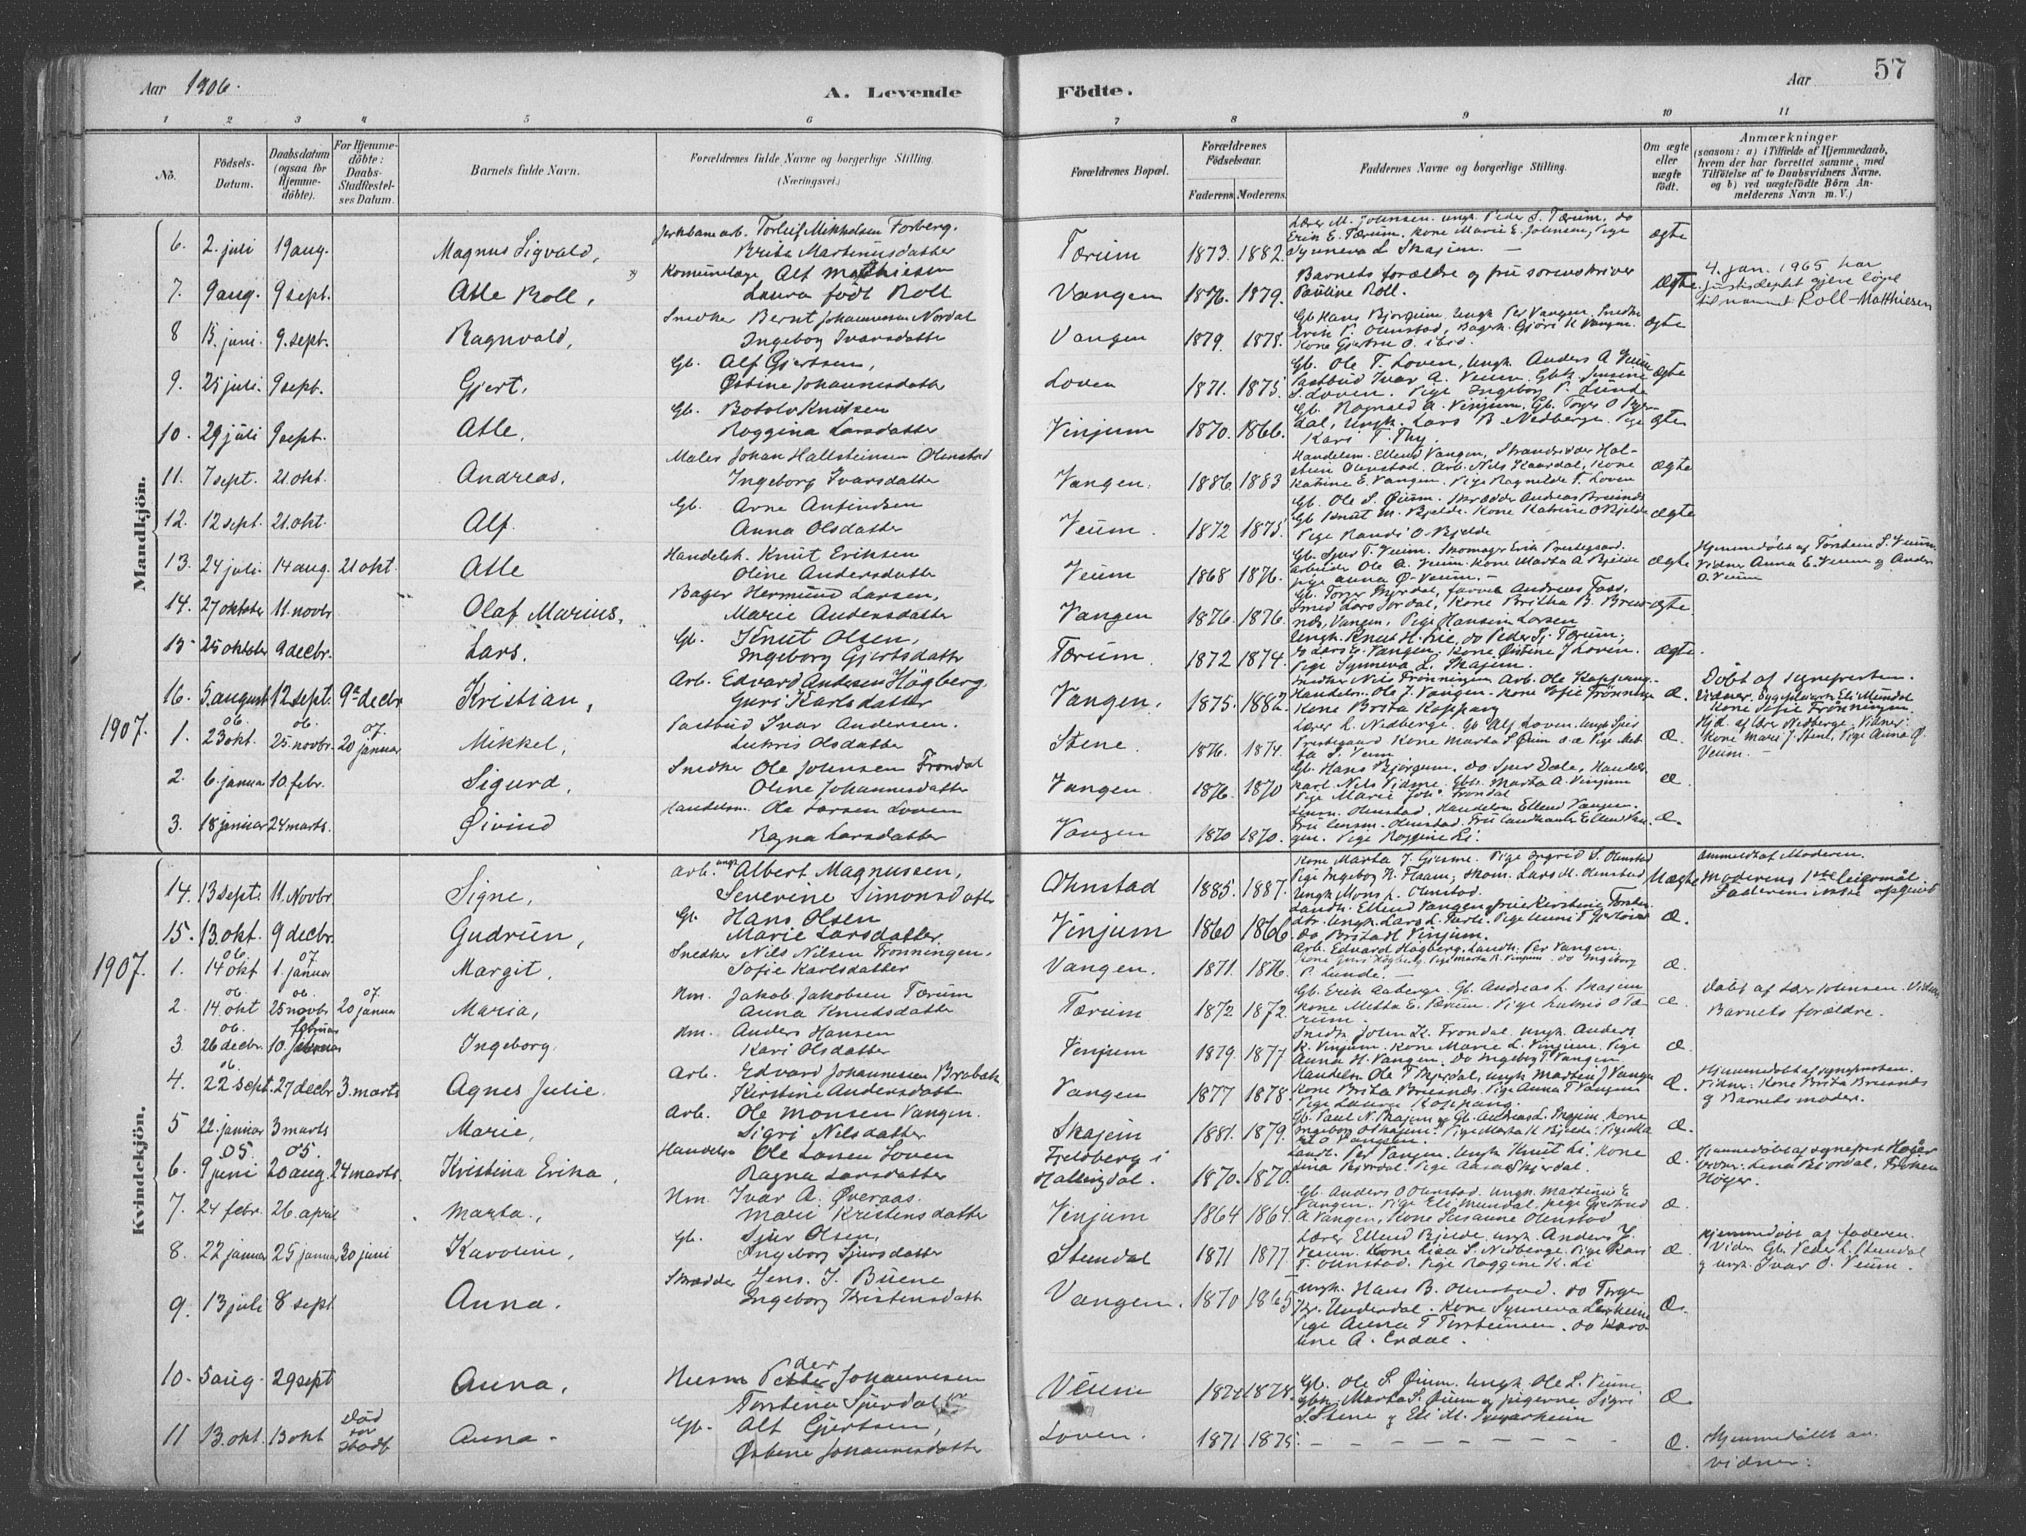 Aar 1906.
A. Levende
Födte.
Aar
57
1 2 3 4 5 6 7 8 9 10 11
No.
Födsels-
Datum.
Daabsdatum
(ogsaa for
Hjemme-
döbte).
For Hjemme-
döbte:
Daabs-
Stadfæstel-
ses Datum.
Barnets fulde Navn.
Forældrenes fulde Navne og borgerlige Stilling.
(Næringsvei.)
Forældrenes Bopæl.
Forældrenes
Födselsaar.
Faderens. Moderens.
Faddernes Navne og borgerlige Stilling.
Om ægte
eller
uægte
födt.
Anmærkninger
(saasom: a) i Tilfælde af Hjemmedaab,
hvem der har forrettet samme, med
Tilföielse af to Daabsvidners Navne,
og b) ved uægtefödte Börn An-
melderens Navn m. V.)
Mandkjön.
6. 2. juli 19 aug. Magnus Sigvald, Jernbanearb. Torleif Mikkelsen Forberg.
Brita Martinusdatter Tærum 1873. 1882. Lærer M. Johnsen. ungk. Peder S. Tærum, do
Erik E. Tærum, kone Marie E. Johnsen, Pige
Synneva L. Skajem. ægte
7. 9 aug. 9 sept. Atle Roll, Komunelæge Alf Mathiesen
Laura født Roll Vangen 1876. 1879. Barnets forældre og fru sorenskriver
Pauline Roll. Ægte. 4. jan. 1965 har
justisdeptet gjeve løyve
til namnet Roll-Matthiesen
8 15. juni. 9. sept. Ragnvald, Snedker Bernt Johannessen Nordal
Ingeborg Ivarsdatter Vangen 1879. 1878. Gb Hans Bjørgum, Ungk Per Vangen, Snedke
Erik P. Ohnstad, Bagerk. Gjøri K Vangen.
Kone Gjertru O. ibid. ægte
9. 25 juli. 9 sept. Gjert, Gb. Alf Gjertsen,
Østine Johannesdatter Loven 1871. 1875. Gb. Ole T. Loven, Ungk. Anders A Veum
Pastbud Ivar A. Veum. Gbk. Jensine
S. Loven. Pige Ingeborg P. Lunde ægte
10. 29 juli 9 sept. Atle, Gb. Botolv Knutsen
Roggina Larsdatter Vinjum 1870. 1866. Gb. Ragnald A. Vinjum. Gb. Torger O Myr-
dal, Ungk. Lars B. Nedberge. Pige
Kari T. Thy. ægte
11. 7 sept. 21 okt. Andreas. Maler Johan Hallsteinsen Ohnstad
Ingeborg Ivarsdatter Vangen. 1886 1883 Handelsm. Ellend Vangen, Strandsidder Hal-
stein Ohnstad. Arb. Nils Kaardal, Kone
Katrine E. Vangen. Pige Ragnilde T. Loven ægte
12. 12 sept. 21 okt. Alf. Gb. Arne Anfindsen
Anna Olsdatter Veum. 1872 1875. Gb. Ole S. Øium. Skrædder Andreas Bruendr
Gb Knut M. Bjelde. Kone Katrine O Bjelde
Pige Randi O. Bjelde ægte
13. 24 juli. 14 aug. 21 okt. Atle Handelsk. Knut Eriksen
Oline Andersdatter Veum 1868 1876. Gb. Sjur T. Veum. Skomager Erik Prestegaard.
arbeider Ole A. Veum. Kone Marta A Bjelde
pige Anna Ø. Veum. ægte Hjemmedøbt af Torstein S. Veum.
Vidner Anna E. Veum og Anders
O. Veum
14. 27 oktober 11. novbr. Olaf Marius, Bager Hermund Larsen,
Marie Andersdatter Vangen 1876. 1876. Gb. Torger Myrdal, farver Andreas Foss,
Smed Lars Jordal, Kone Britha B. Brues-
næs, Vangen, Pige Hansine Larsen ægte.
15 25 oktober 9 decbr. Lars. Gb. Knut Olsen,
Ingeborg Gjertsdatter Tærum. 1872 1874. Ungk. Knut H. Lie, do Peder Sj. Tærum,
do Lars E. Vangen. Kone Østine J Loven.
Pige Synneva L. Skajem. ægte.
16. 5 august 12 sept. 9de decbr Kristian, Arb. Edvard Andersen Høgberg.
Guri Karlsdatter Vangen. 1875. 1882. Snedker Nils Frønningen Arb. Ole Koppang
Handelsm. Ole J. Vangen. Kone Sofie Frønninge
Kone Brita Koppang æ. Døbt af sogneprosten.
Vidner, Sygepleierk Eli Mundal
Kone Sofie Frønningen.
1907. 1. 23 okt. 06 25 novbr. 06 20 januar 07 Mikkel, Pastbud Ivar Andersen.
Lukris Olsdatter Stene. 1876. 1874. Lærer L. Nedberge. Gb Alf Loven. Ungk Sjur
Prestegaard Kone Marta S Øium o.a Pige Met-
ta S. Veum æ. Hjd. af lærer Nedberge. Vidner:
Kone Marie J. Stene, Pige Anna Ø.
Veum.
2. 6. januar 10. febr. Sigurd, Snedker Ole Johnsen Frondal
Oline Johannesdatter Vangen. 1876. 1870 Gb. Hans Bjørgum, do Sjur Dale, Handels-
karl Nils Vidme. Gbk. Marta A. Vinjum
Pige Marie Joh. Frondal æ.
3. 18 januar 24 marts. Øivind Handelsm. Ole Larsen Loven
Ragna Larsdatter Vangen 1870 1870. Lensm. Ohnstad, Handelsm Ellend Vangen.
Fru Lensm. Ohnstad. Fru landhandl Ellend Van-
gen. Pige Roggine Li. æ.
Kvindekjön.
14. 13 sept. 11. Novbr. Signe, arb. ungk Albert Magnussen,
Severine Simonsdatter Ohnstad 1885. 1887. Kone Marta J. Gjesme. Pige Ingrid S. Ohnstad
Pige Ingeborg N. Flaam; Skom. Lars M. Ohnstad
Ungk Mons L. Ohnstad. Uægte Anmeldt af Moderen.
Moderens 1ste leiermål.
Faderens ikke opgivet
15. 13. okt. 9 decbr. Gudrun, Gb. Hans Olsen
Marie Larsdatter Vinjum 1860 1866. Landh. Ellend Vangen frue Kirstine Torstens-
dtr. Ungk. Lars L. Turli. Pige Unni T Gjertsine
do Britadt Vinjum. æ.
1907. 1. 14 okt 06 1. januar 07 Margit, Snedker Nils Nilsen Frønningen.
Sofie Karlsdatter Vangen. 1871. 1876. Arb. Edvard Høgberg. Landh. Per Vangen.
Kone Guri Høgberg. Pige Marta R. Vinjum. do Ingeborg
P. Lunde. æ.
2 14. okt 06 25 novbr 06 20 januar 07 Maria, Hm. Jakob Jakobsen Tærum
Anna Knutsdatter Tærum 1872 1872. Gb. Erik Aaberge. Gb. Andreas L. Skajem
Kone Metta E. Tærum. Pige Lukris O Tæ-
rum. æ Døbt af Lær Johnsen. Vidner
Barnets forældre.
3 26 decbr. 06 10. februar Ingeborg. Hm. Anders Hansen
Kari Olsdatter Vinjum 1879. 1877 Snedk. John K. Frondal, ungk. Anders
K. Vinjum. Kone Marie L. Vinjum, Pige
Anna H. Vangen. do Ingeborg T Vangen æ.
4. 22 sept. 06 27 decbr 3. marts Agnes Julie. Arb. Edvard Johannessen Brobak
Kirstine Andersdatt Vangen 1877 1878. Handelsm Ole T Myrdal, ungk Martin J Vange
Kone Brita Bruesnæs. Pige Anna T Vangen
Pige Laura Koppang. æ. Hjemmedøbt af sogneprosten.
Vidner. Kone Brita Bruesnæs
og Barnets moder.
5 22 januar 3 marts Marie, Arb. Ole Monsen Vangen.
Sigri Nilsdatter Skajem 1881. 1879. Gb. Paul N. Skajem og Gb. Andreas L. Skajem, kone
Ingeborg O Skajem. Pige Marta K Bjelde. Pige Ma
O Vangen. æ.
6. 9 juni 05. 20 aug. 05. 24 marts Kristina Erika, Handelsm Ole Larsen Loven
Ragna Larsdatter Fjeldberg i
Hallingdal. 1870. 1870. Landh. Per Vangen, ungk Knut Li, Kone
Lina Bjørdal. Pige Aasa Skjerdal. æ Hjemmedøbt af sogneprest Høyer
Vidner. Lina Bjordal, Frøken
Høyer.
7. 24 febr. 26. april Marta, Hm. Ivar A. Øveraas.
Mari Kristensdatter Vinjum 1864 1864. Gb. Anders O Ohnstad. Ungk. Martinus E
Vangen. Pige Eli Mundal, pige Gjertrud
A Vangen, Kone Susanne Ohnstad æ.
8. 22 januar 25 januar 30 juni Karoline, Gb. Sjur Olsen,
Ingeborg Sjursdatter Stundal 1871 1877. Lærer Ellend Bjelde. ungk. Anders J.
Veum. Kone Lisa S. Nedberge. Pige Kari
T. Ohnstad. Pige Roggine K. Li æ. Hjemmedøbt af faderen.
Vidner Gb. Peder L. Stundal
og ungk. Ivar O. Veum.
9. 13 juli 8 sept. Anna. Skrædder Jens J. Buene
Ingeborg Kristensdatt Vangen. 1870 1865 Ungk. Hans B. Ohnstad. do Torger
Kr. Underdal. Kone Synneva Lerheim
Pige Anna T Torsteinsen. do Karo-
line A. Erdal. æ.
10. 5 aug. 29 sept Anna, Husm Peder Johannesen
Torstina Sjurdatt Veum 1874 1878. Gb. Ole S. Øium. Ungk Ole L. Veum.
gbk. Marta S. Øium og pigerne Sigri
S. Stene og Eli M. Svarheim æ.
11 13. okt. 13 okt Død
før
Stadf Anna. Gb. Alf Gjertsen,
Østine Johannesdatter Loven. 1871 1875. æ. Hjemmedøbt av.
vidner: